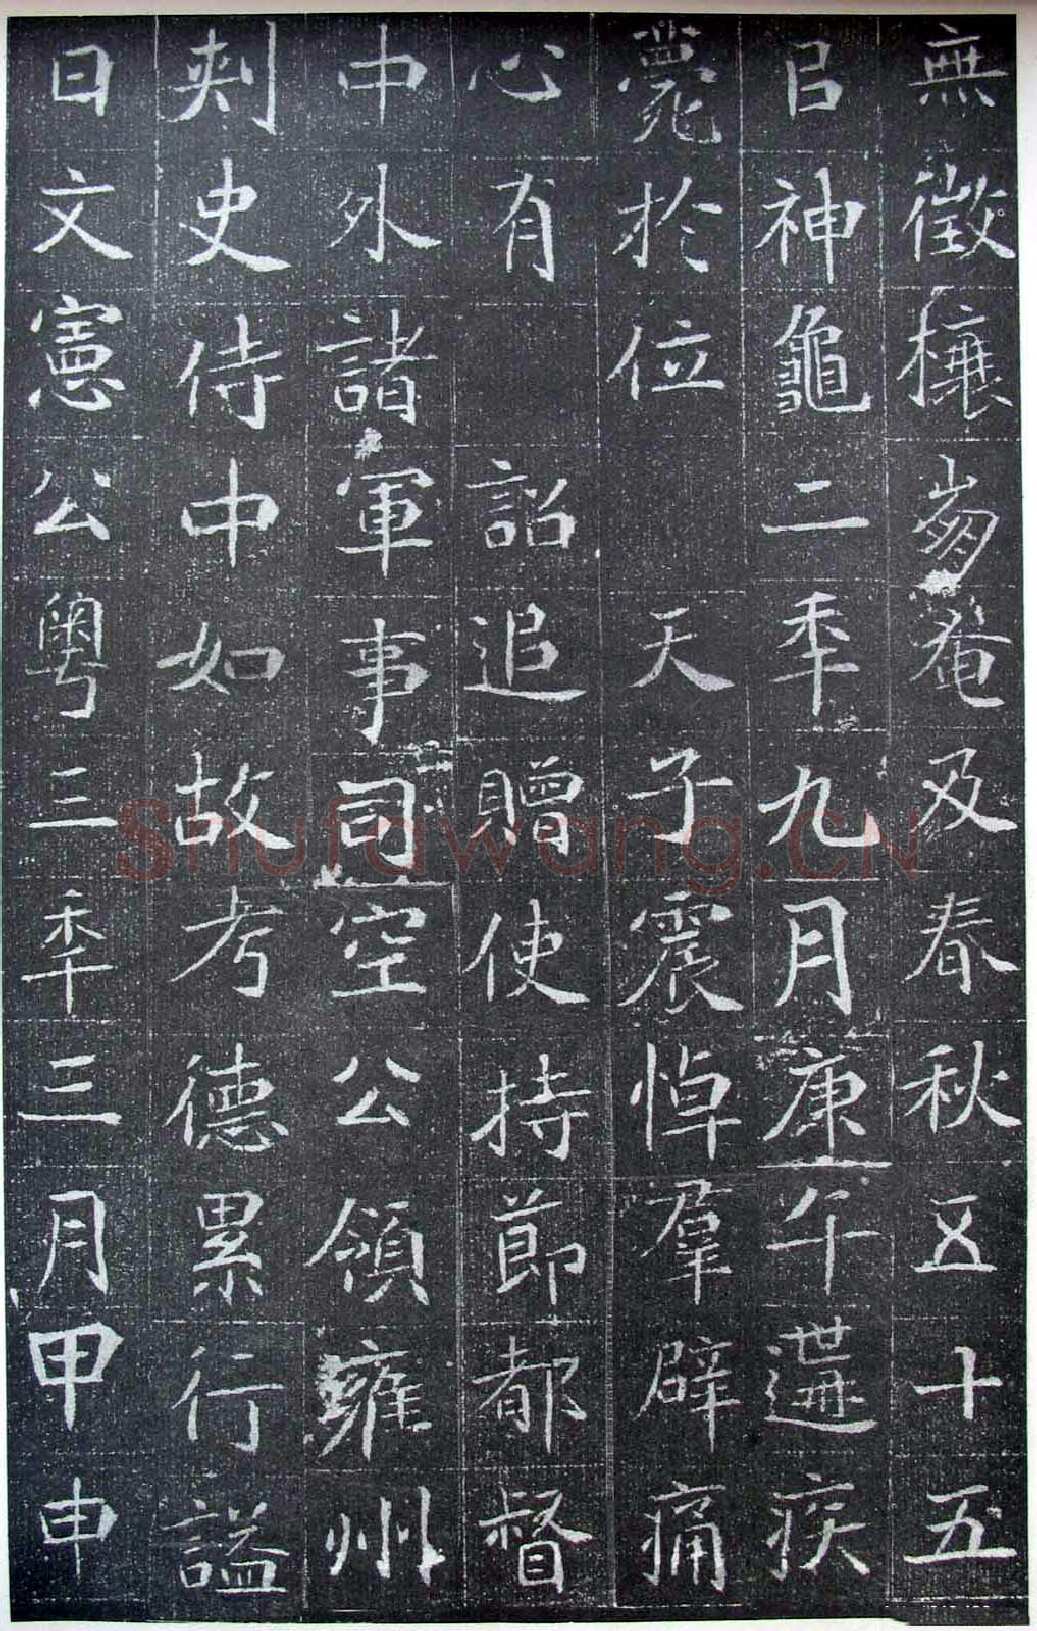 無徵榱崩奄及春秋五十五
㠯神龜二秊九月庚午遘疾
薨於位 天子震悼羣辟痛
心有 詔追贈使持節都督
中外諸軍事司空公領雍州
刺史侍中如故考德累行謚
曰文憲公粵三秊三月甲申
Shufawang.CN